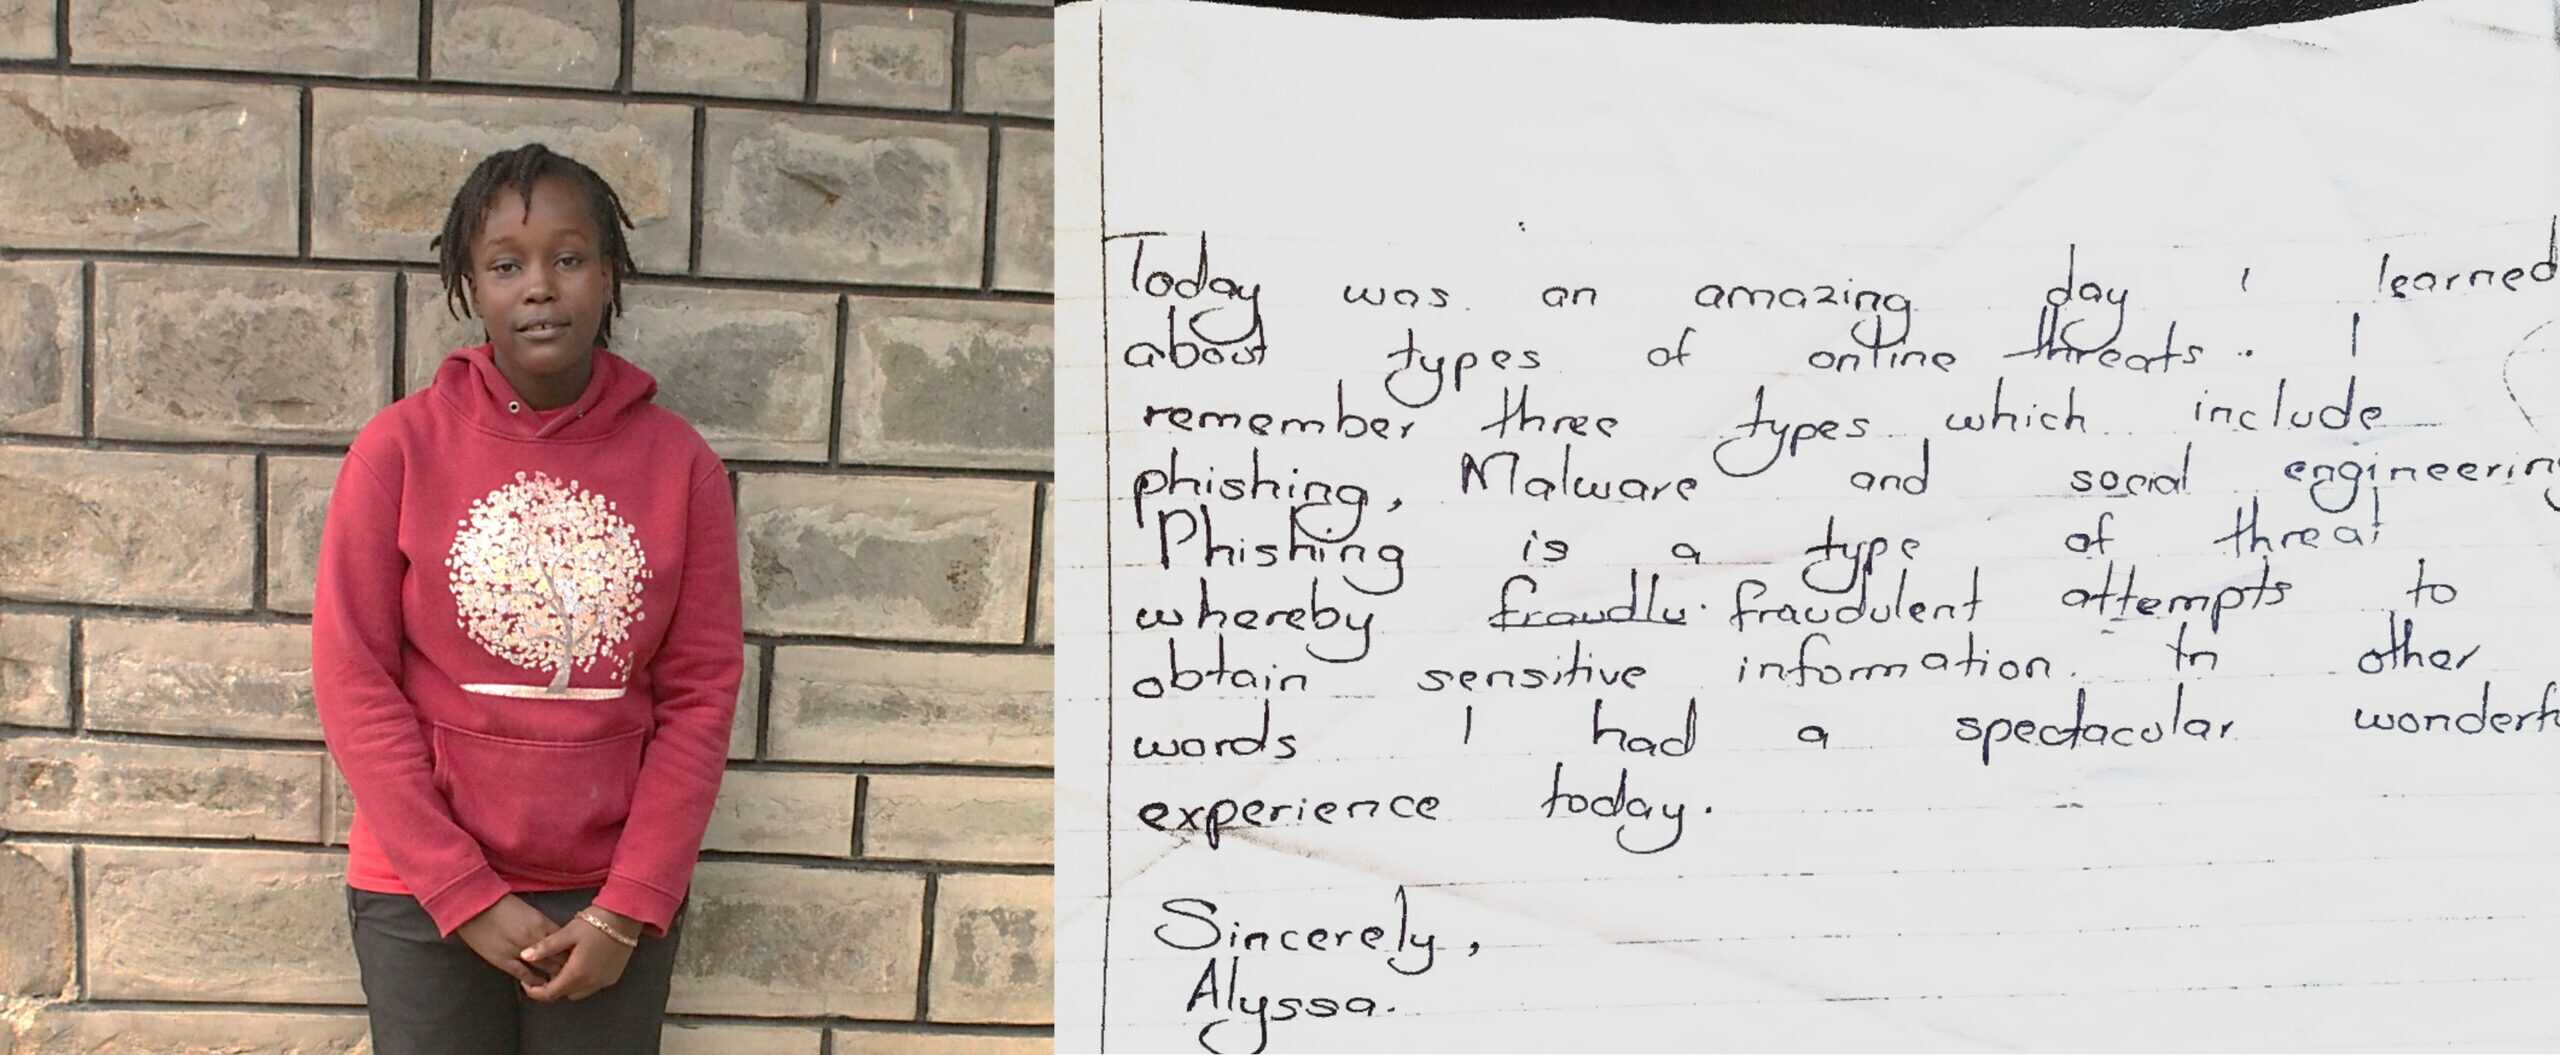 Today was an amazing day I learned
about types of online threats. I
remember three types which include
phishing, Malware and social engineering
Phishing is a type of threat
whereby fraudlu fraudulent attempts to
obtain sensitive information. In other
words I had a spectacular wonderfu
experience today.
Sincerely,
Alyssa.